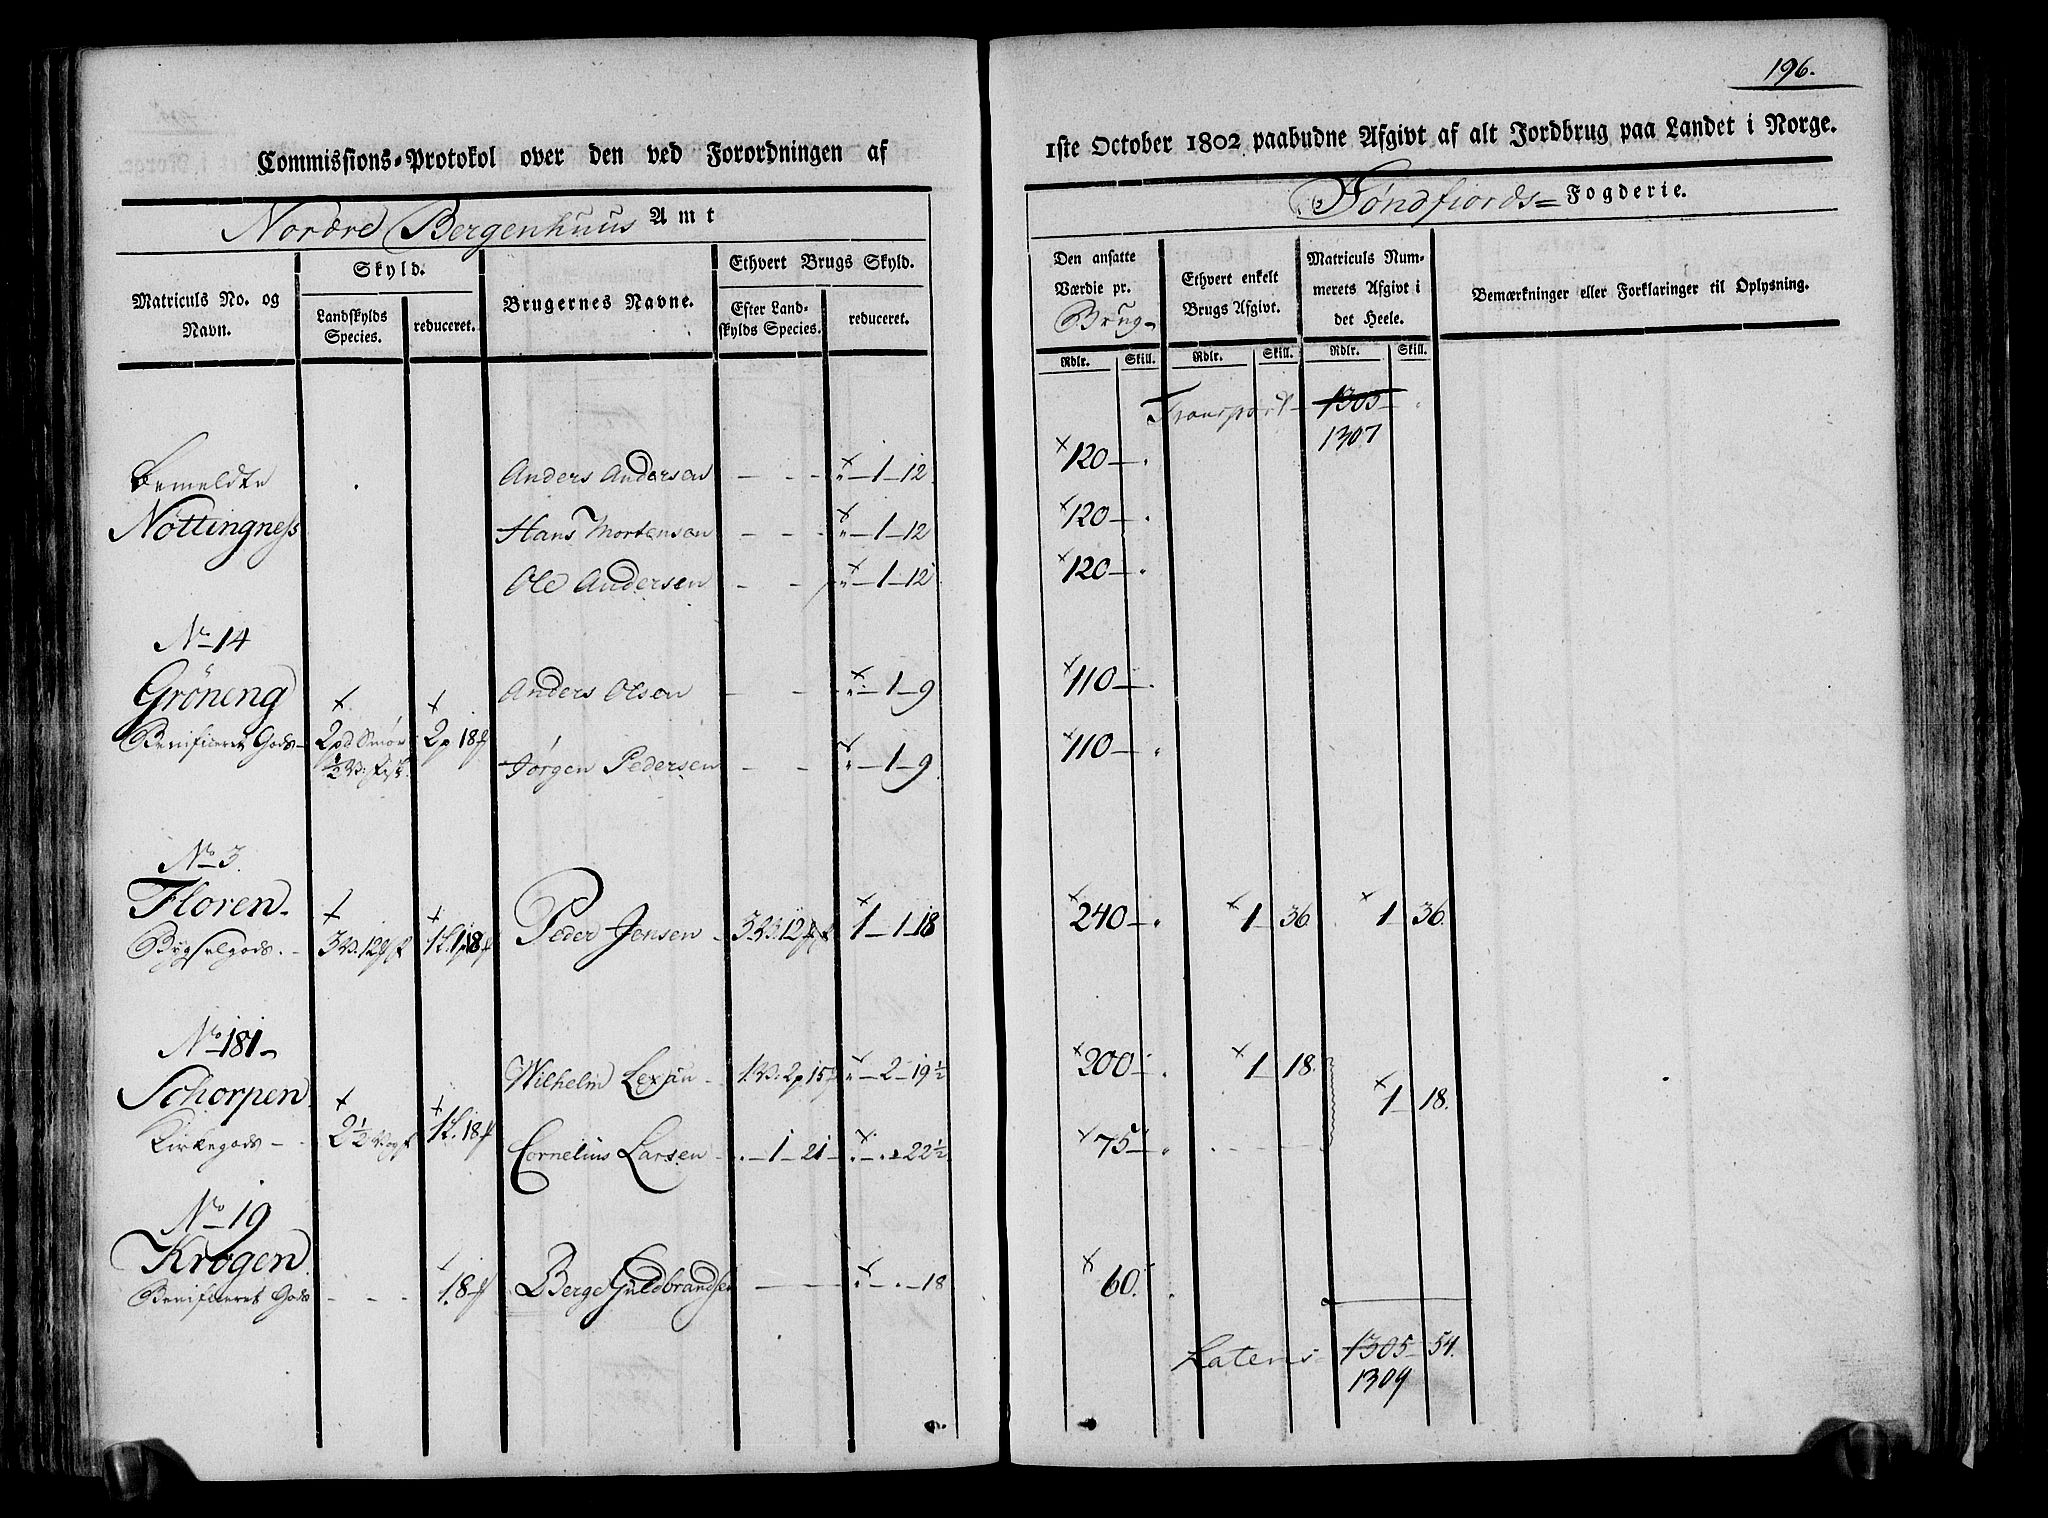 196.
Commissions-Protokol over den ved Forordningen af 1ste October 1802 paabudne Afgivt af alt Jordbrug paa Landet i Norge.
Nordre Bergenhuus Amt
Søndfiords= Fogderie.
Matriculs No. og Navn.
Skyld.
Landskylds Species.
reduceret.
Brugernes Navne.
Ethvert Brugs Skyld.
Efter Landskylds Species.
reduceret.
Den ansatte Værdie pr. Brug
Ethvert enkelt Brugs Afgivt.
Matriculs Nummerets Afgivt i det Heele.
Bemærkninger eller Forklaringer til Oplysning.
Rdlr. Skill. Rdlr. Skill. Rdlr. Skill.
Transport 1305
1307
Bemeldte Anders Andersen - - - " - 1 - 12 120 -
Nöttingness Hans Mortensen - - - " - 1 - 12 120 -
Ole Andersen - - " - 1 - 12 120 -
No 14
Gröneng Anders Olsen - - " - 1 - 9 110 -
Benificeret Gods - 2 pd Smör 2 p 18 Jørgen Pedersen - - " - 1 - 9 110 -
½ V: fisk
No 3.
Floren Peder Jensen 3 V: 12 1 - 1 - 18 240 - 1 36 1 36.
Bygselgods. - 3 V: 12 1 L. 1 p 18
No 181
Schorpen Wilhelm 1 V: 2 p 15 " - 2 - 19½ 200 - 1 18. 1 18.
Kirkegods - 2½ V: 1 L. 18 Cornelius Larsen - 1 - 21 - 22½ 75 -
No 19
Krogen
Benificeret Gods - - - 18 Berge Guldbrandsen - - 18 60.
Latens 1305 54.
1309